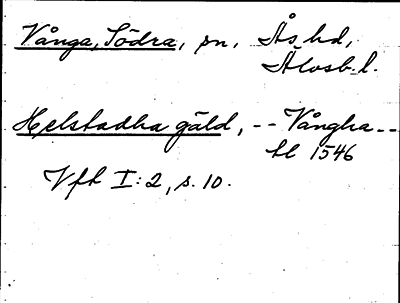 Vånga, Södra, sn, Ås hd,
Älvsb. l.
Helstadha gäld, -- Vångha --
bl 1546
Vfh I:2, s. 10.